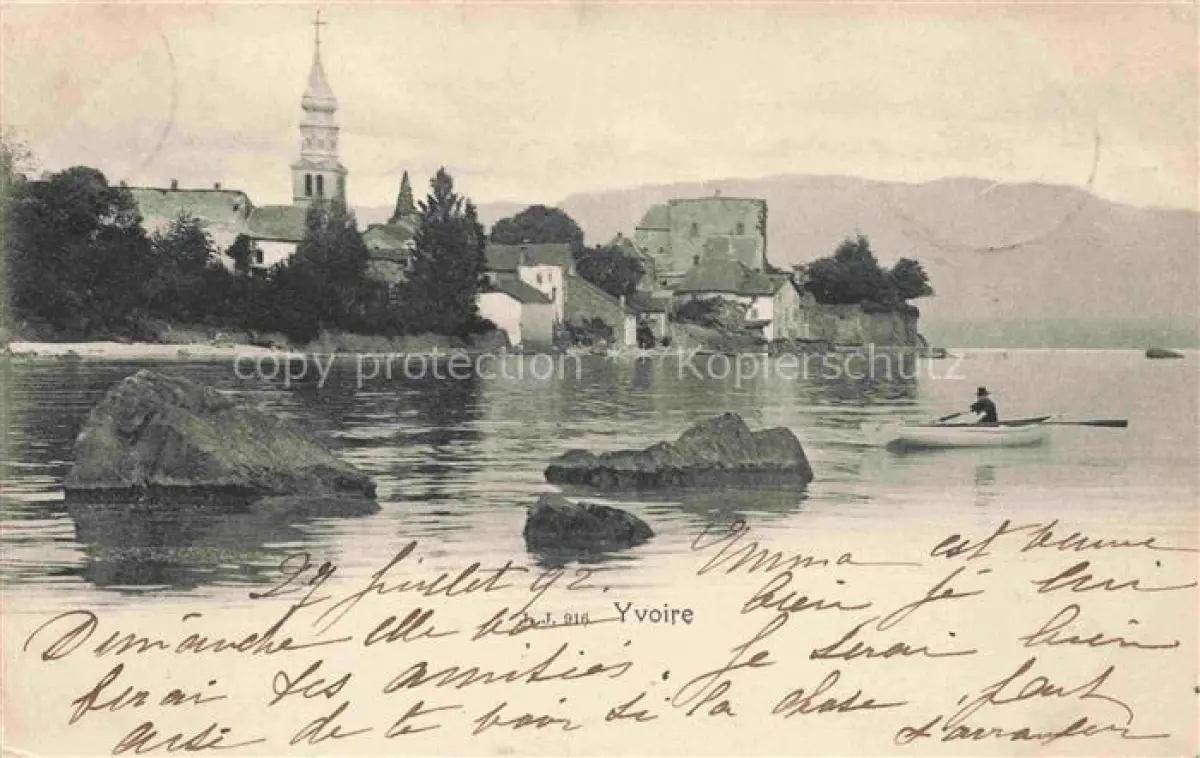 copy protection   Kopierschutz
29 Juillet 92. Emma est venue
J.J. 916 Yvoire
Demânche elle va bien je lui
ferai tes amitiés. Je serai bien
aise de te voir si la chose peut
s'arranger